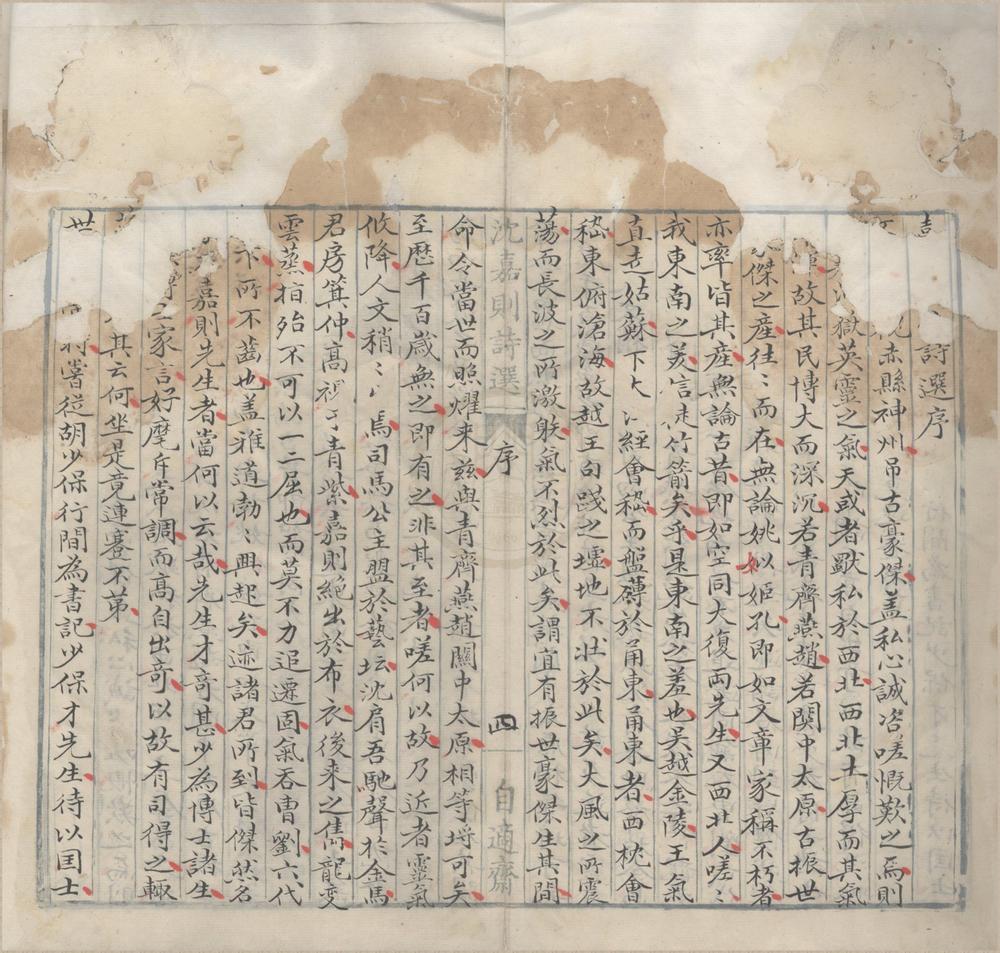 詩選序
赤縣神州吊古豪傑蓋私心誠咨嗟慨歎之焉則
嶽英靈之氣天或者獸私於西北西北土厚而其氣
故其民博大而深沉若青齊燕趙若関中太原古振世
傑之産往〻而在無論姚姒姬孔即如文章家稱不朽者
亦率皆其産無論古昔即如空同大復両先生又西北人嗟〻
我東南之美言走竹箭矣乎是東南之羞也吳越金陵王氣
直走姑蘇下經會稽而盤礴於甬東甬東者西枕會
稽東俯滄海故越王句踐之墟地不壯於此矣大風之所震
蕩而長波之所激躲氣不烈於此矣謂宜有振世豪傑生其間
沈嘉則詩選 序 四 自適齋
命令當世而照燿来兹與青齊燕趙關中太原相等埒可矣
至歴千百歲無之即有之非其至者嗟何以故乃近者靈氣
攸降人文稍〻焉司馬公主盟於藝坛沈肩吾馳聲於金馬
君房箕仲高青紫嘉則絕出於布衣後来之雋龍变
雲蒸指殆不可以一二屈也而莫不力追遷固氣吞曹劉六代
下所不齒也蓋雅道勃〻興起矣迹諸君所到皆傑然名
嘉則先生者當何以云哉先生才奇甚少為博士諸生
家言好麾斥常調而高自出奇以故有司得之輙
其云何坐是竟連蹇不第
世將嘗従胡少保行間為書記少保才先生待以国士